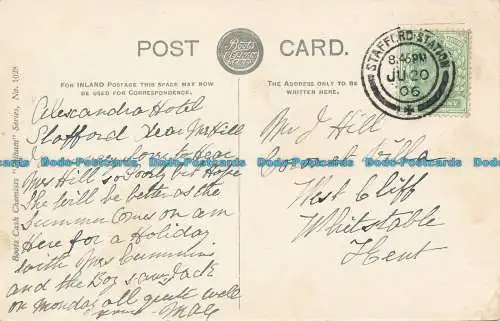 POST CARD.
Boots Cash Chemists
FOR INLAND POSTAGE THIS SPACE MAY NOW
BE USED FOR CORRESPONDENCE.
THE ADDRESS ONLY TO BE
WRITTEN HERE.
STAFFORD STATION
8.45PM
JU 20
06
Boots Cash Chemists " " Series, No. 1028
Alexandra Hotel
Stafford Dear Mr Hill
sorry to hear
Mrs Hill so Poorly but Hope
She will be better as the
Summer Comes on am
Here for a Holiday
with Mrs Cummins
and the Boy saw Jack
on Monday all quite well
May
Mr J Hill
Villa
West Cliff
Whitstable
Kent
Dodo-Postcards Dodo-Postcards Dodo-Postcards Dodo-Postcards Dodo-Postcards